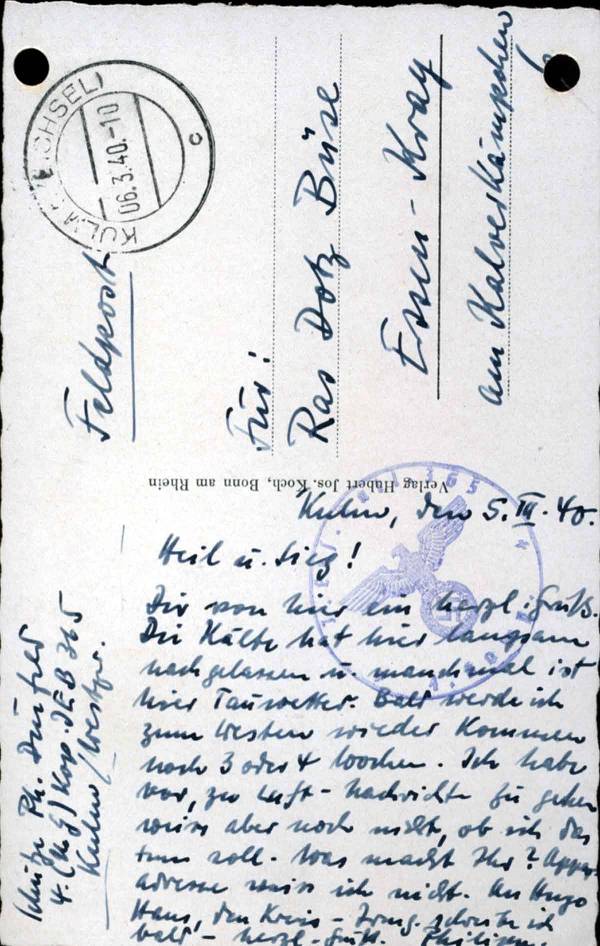 KULM (WEICHSEL)
06.3.40.-10
c
Feldpost
Für!
Ras Dotz Büse
Essen-Kray
am Kalverkämpchen
Verlag Hubert Jos. Koch, Bonn am Rhein
365
Kulm, den 5. III. 40.
Heil u. Sieg!
Dir von hier ein herzl. Gruß.
Die Kälte hat hier langsam
nachgelassen u. manchmal ist
hier Tauwetter. Bald werde ich
zum Westen wieder kommen
noch 3 oder 4 Wochen. Ich habe
vor, zu Luft-Nachricht zu gehen
weiss aber noch nicht, ob ich das
tun soll. Was macht Ihr?
adresse weiss ich nicht. An Hugo
Haus, den Kreis- schreibe ich
bald - herzl. Gruß. Philipp
Schütze Ph.
4. (M.G.) Kop. I.E.B. 365
Kulm/Westpr.